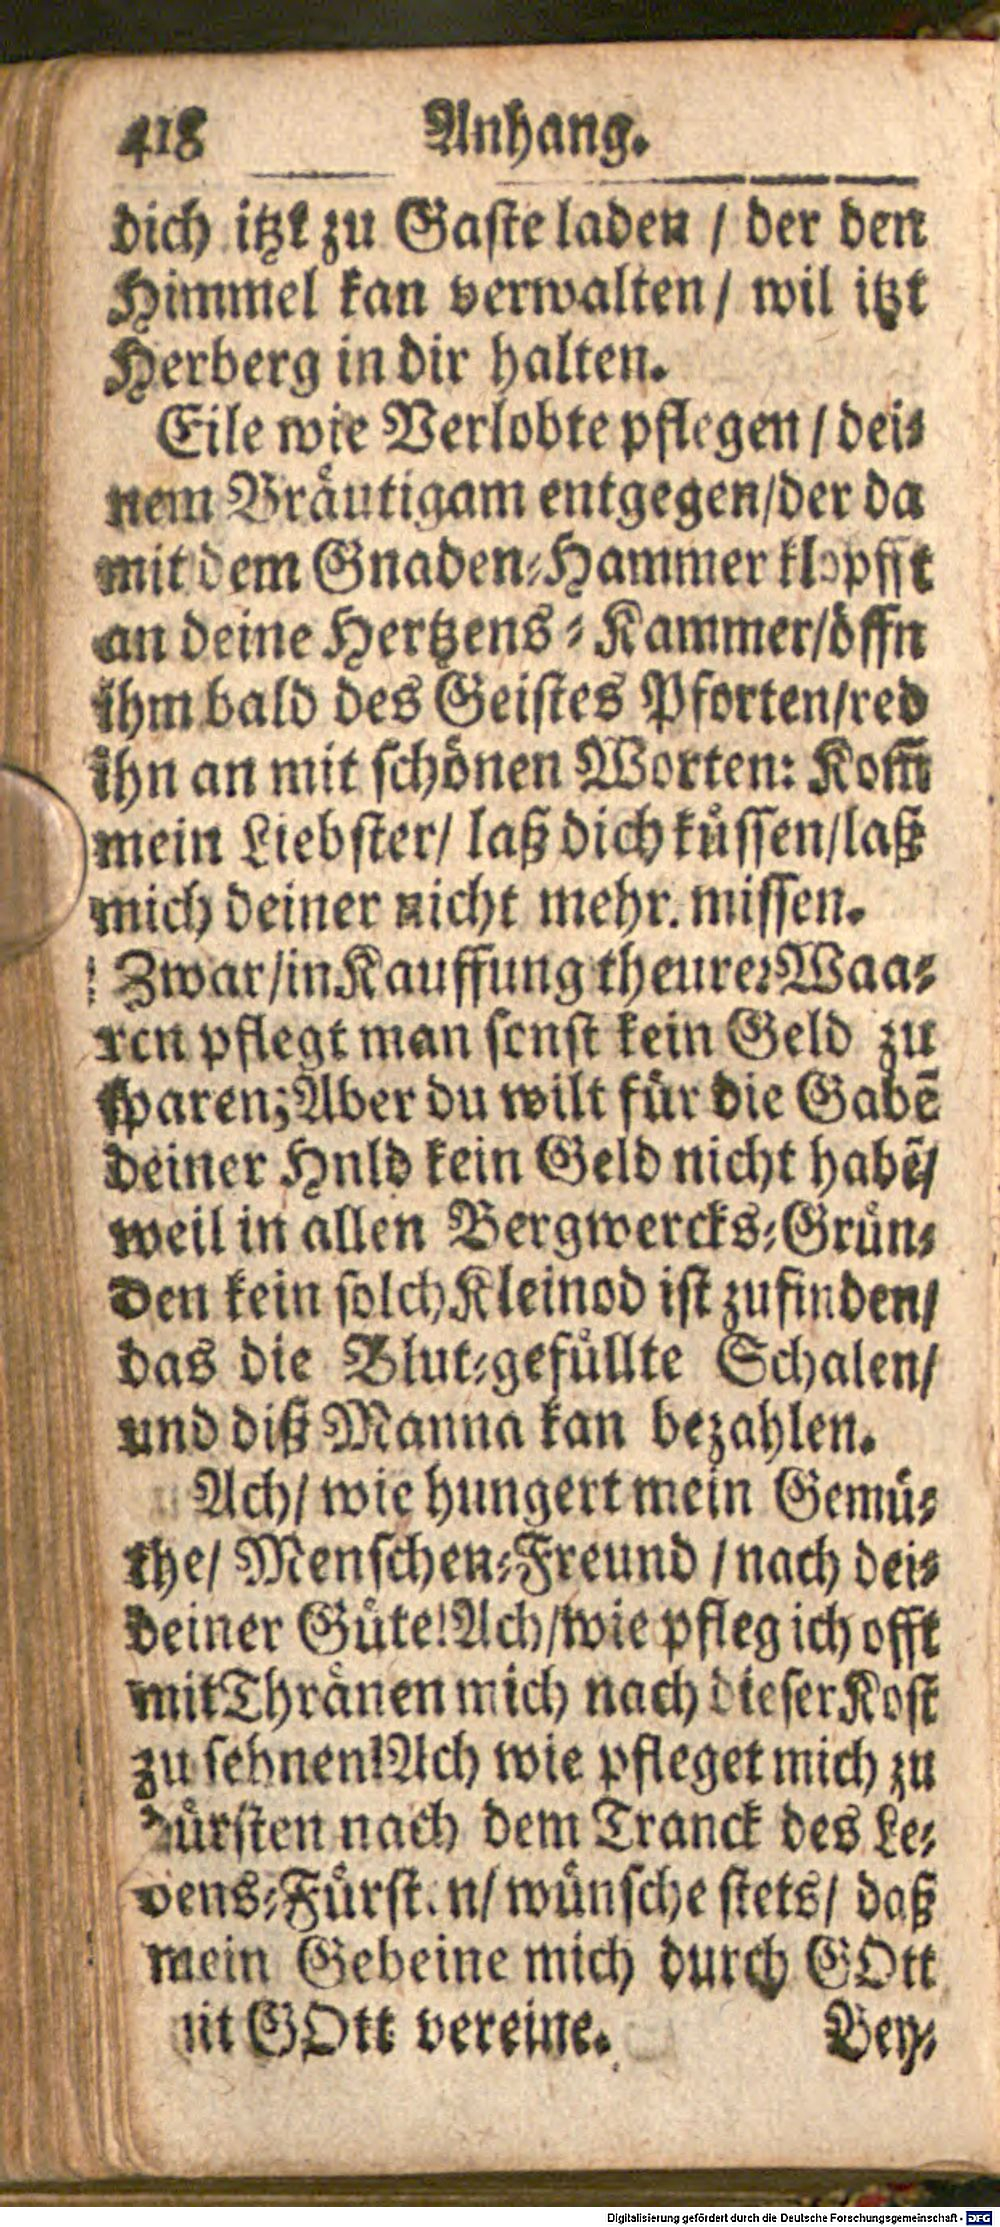 418 Anhang.
dich itzt zu Gaste laden / der den
Himmel kan verwalten / wil itzt
Herberg in dir halten.
Eile wie Verlobte pflegen / dei⸗
nem Bräutigam entgegen/der da
mit dem Gnaden⸗Hammer klopfft
an deine Hertzens ⸗ Kammer/öffn
ihm bald des Geistes Pforten/red
ihn an mit schönen Worten: Kom̃
mein Liebster/ laß dich küssen/laß
mich deiner nicht mehr. missen.
Zwar/in Kauffung theurer Waa⸗
ren pflegt man sonst kein Geld zu
sparen; Aber du wilt für die Gabē
deiner Hnld kein Geld nicht habē/
weil in allen Bergwercks⸗Grün⸗
den kein solch Kleinod ist zufinden/
das die Blut⸗gefüllte Schalen/
und diß Manna kan bezahlen.
Ach/ wie hungert mein Gemü⸗
the/ Menschen⸗Freund / nach dei⸗
deiner Güte! Ach/wie pfleg ich offt
mit Thränen mich nach dieser Kost
zu sehnen! Ach wie pfleget mich zu
dürsten nach dem Tranck des Le⸗
bens⸗Fürsten/ wünsche stets/ daß
mein Gebeine mich durch GOtt
mit GOtt vereine.
Bey⸗
Digitalisierung gefördert durch die Deutsche Forschungsgemeinschaft - DFG